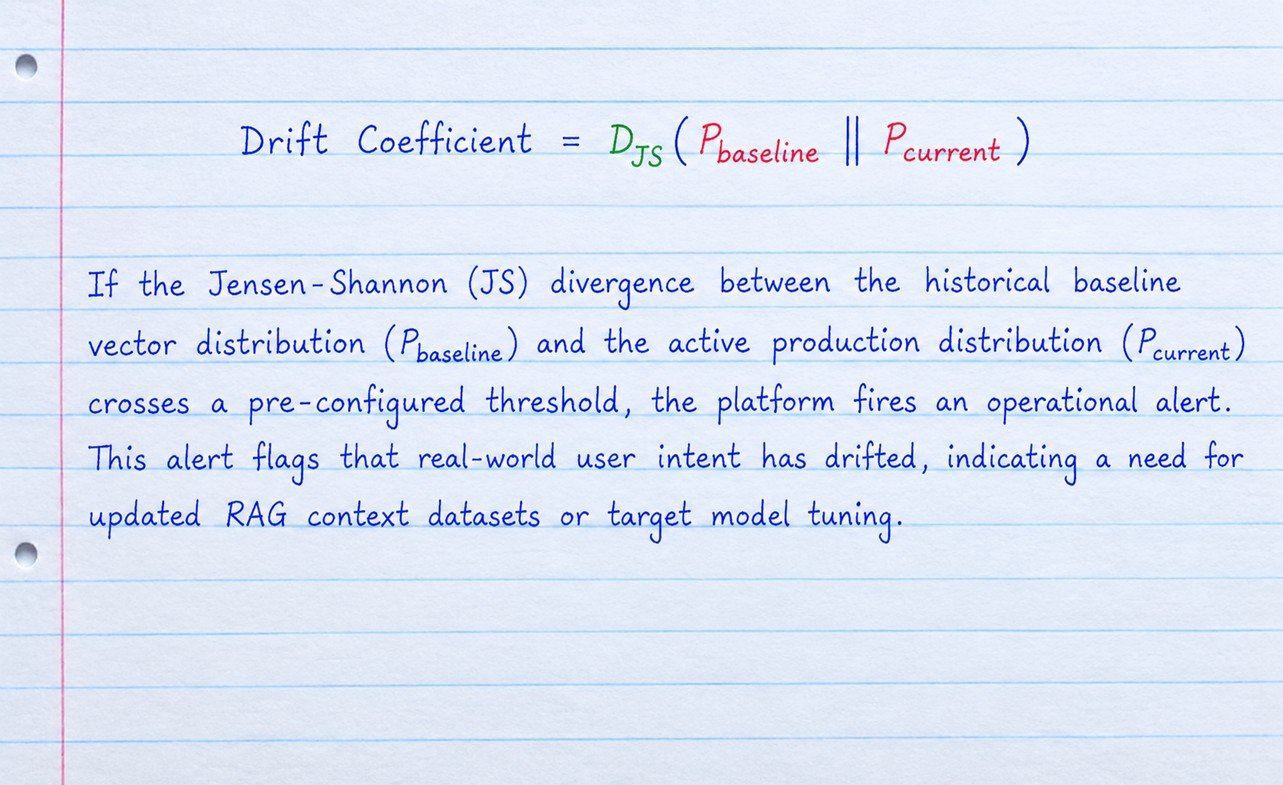 Drift Coefficient = D_JS(P_baseline || P_current)
If the Jensen-Shannon (JS) divergence between the historical baseline
vector distribution (P_baseline) and the active production distribution (P_current)
crosses a pre-configured threshold, the platform fires an operational alert.
This alert flags that real-world user intent has drifted, indicating a need for
updated RAG context datasets or target model tuning.